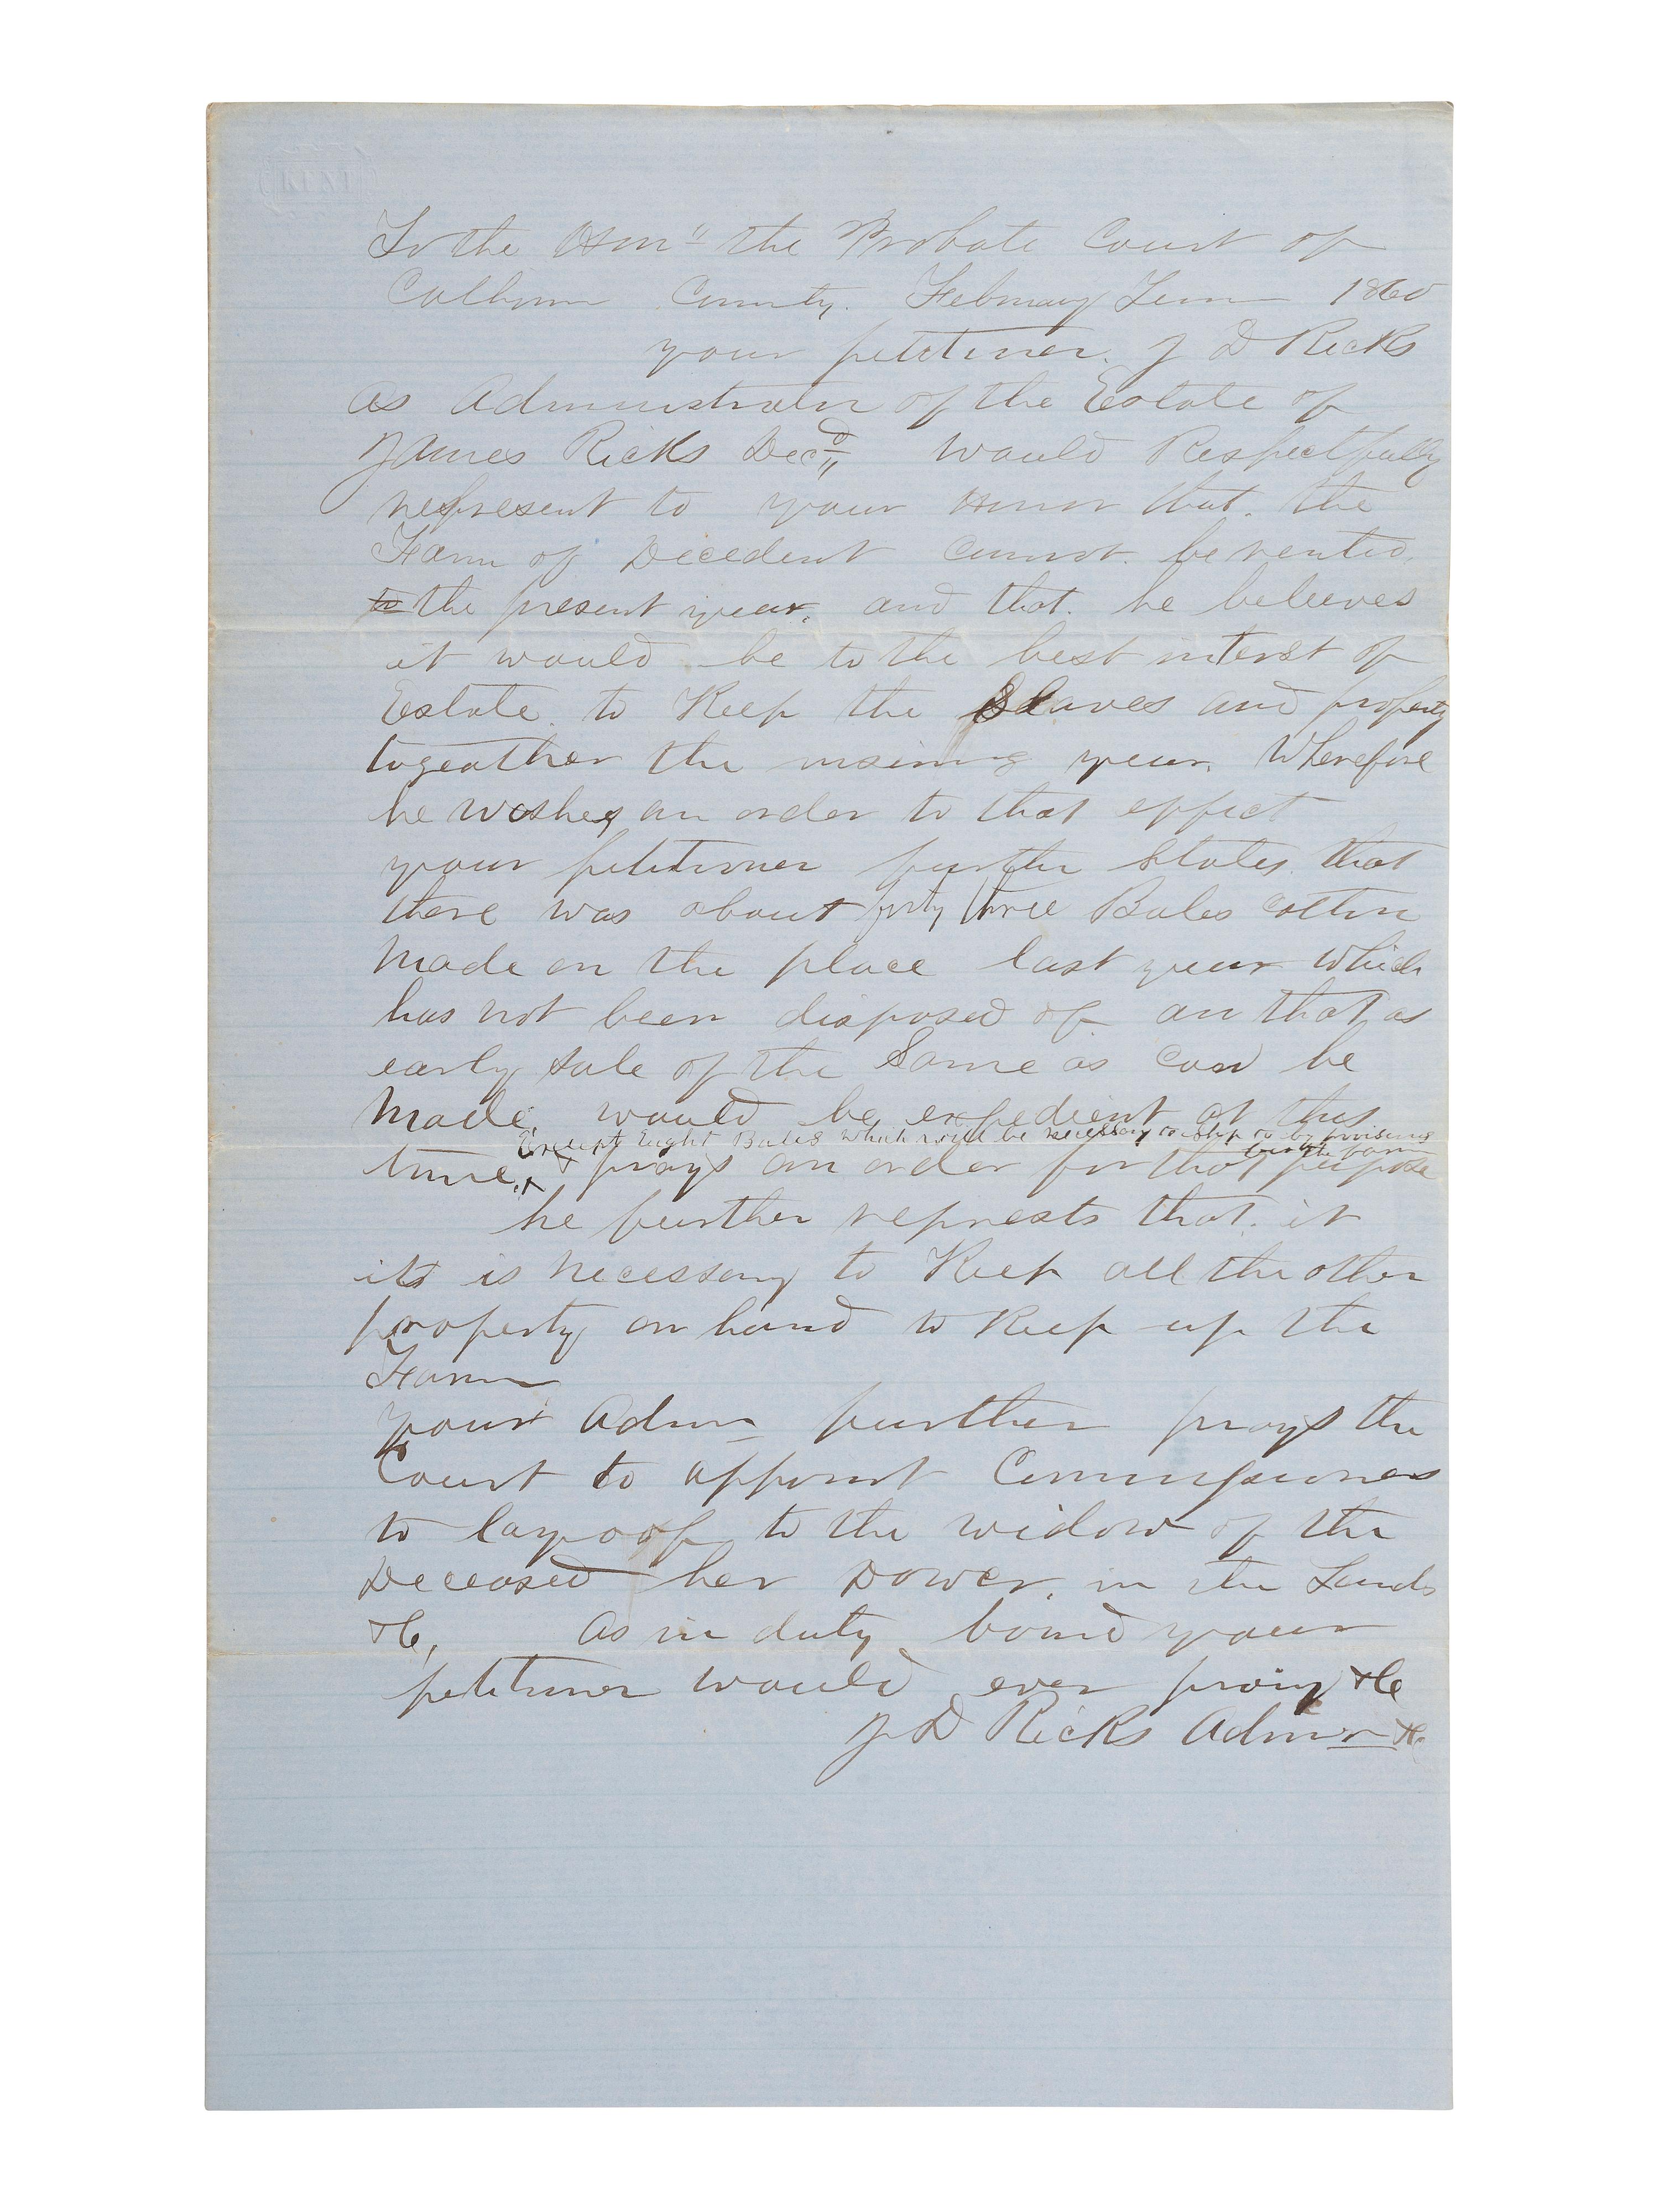 KENT
To the Honl the Probate Court of
Calhoun County. February Term 1860
your petitioner. J D Ricks
as Administrator of the Estate of
James Ricks Decd would Respectfully
represent to your Honor that. the
Farm of Decedent cannot be rented
to the present year, and that. he beleeves
it would be to the best interst of
Estate. to Keep the Slaves and property
togeather the insuing year, Wherefore
he wishes an order to that effect
your petitioner further States that
there was about forty three Bales cotton
made on the place last year which
has not been disposed of an that as
early sale of the same as can be
made, would be expedient at this
Except Eight Bales which will be necessary to ship to by provisions
for the farm
time, & prays an order for that purpose
he further represts that. it
its is necessary to Keep all the other
property on hand to Keep up the
Farm
your Admr further prays the
Court to appoint Commissioners
to lay of to the widow of the
Deceased her Dower, in the Lands
&c, As in duty bound your
petitioner would ever pray &c
J D Ricks Admr &c